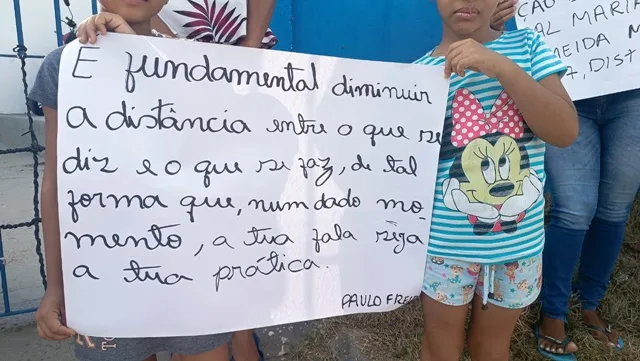 E fundamental diminuir
a distância entre o que se
diz e o que se faz, de tal
forma que, num dado mo-
mento, a tua fala seja
a tua prática.
PAULO FREI
ÇÃO
AL MARIA
MEIDA M
DIST